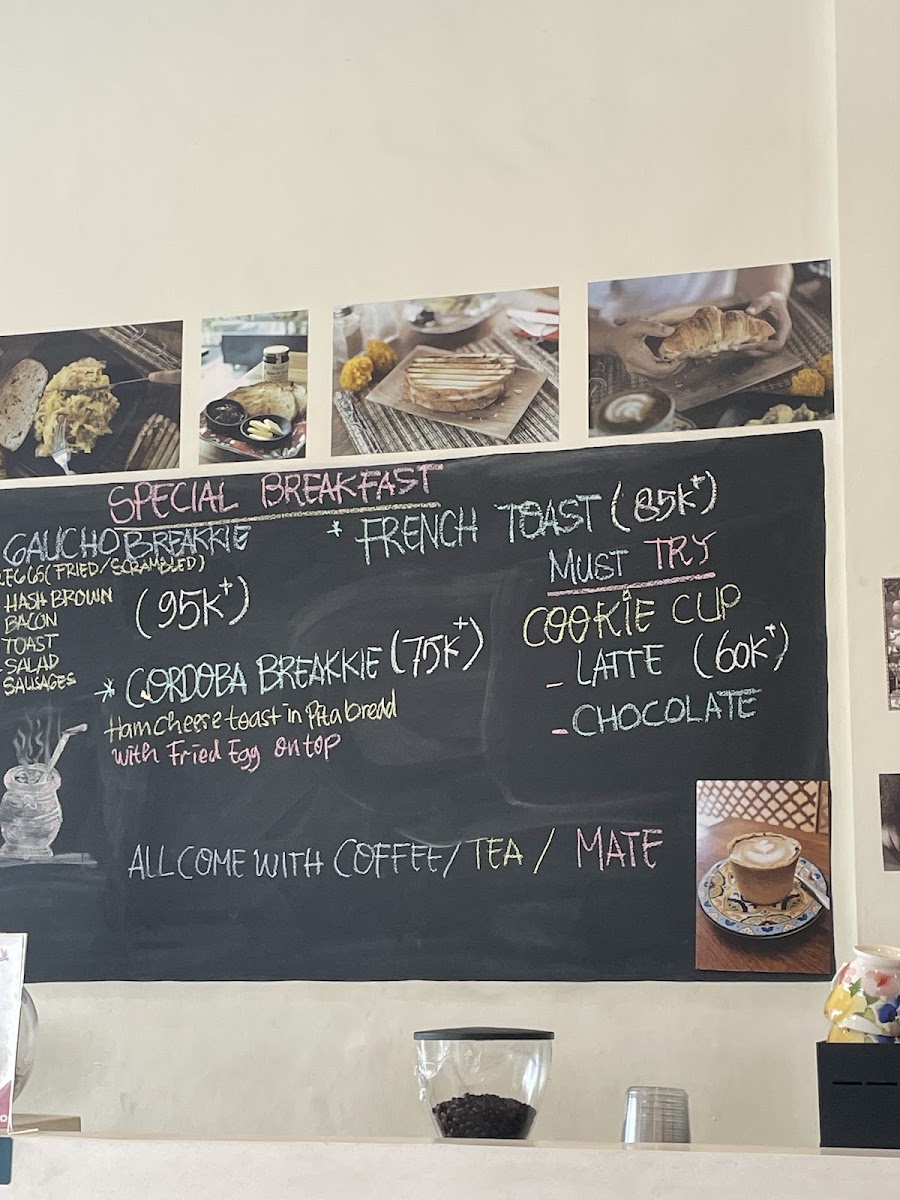 SPECIAL BREAKFAST
GAUCHO BREAKKIE
EGGS (FRIED/SCRAMBLED)
HASH BROWN
BACON
TOAST
SALAD
SAUSAGES
(95K+)
* CORDOBA BREAKKIE (75K+)
Ham cheese toast in Pita bread
with Fried Egg on top
* FRENCH TOAST (85K+)
MUST TRY
COOKIE CUP
- LATTE (60K+)
- CHOCOLATE
ALL COME WITH COFFEE / TEA / MATE